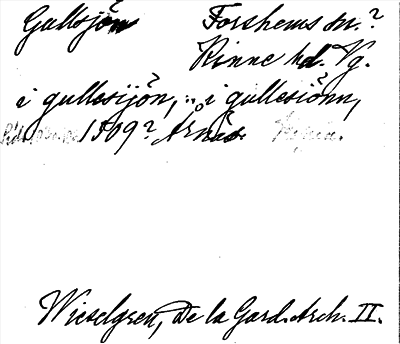 Gullsjön Forshems sn.?
Kinne hd. Vg.
i gullesijön, .. i gullesiönn,
1509? Årnäs
Wieselgren, De la Gard. Arch. II.